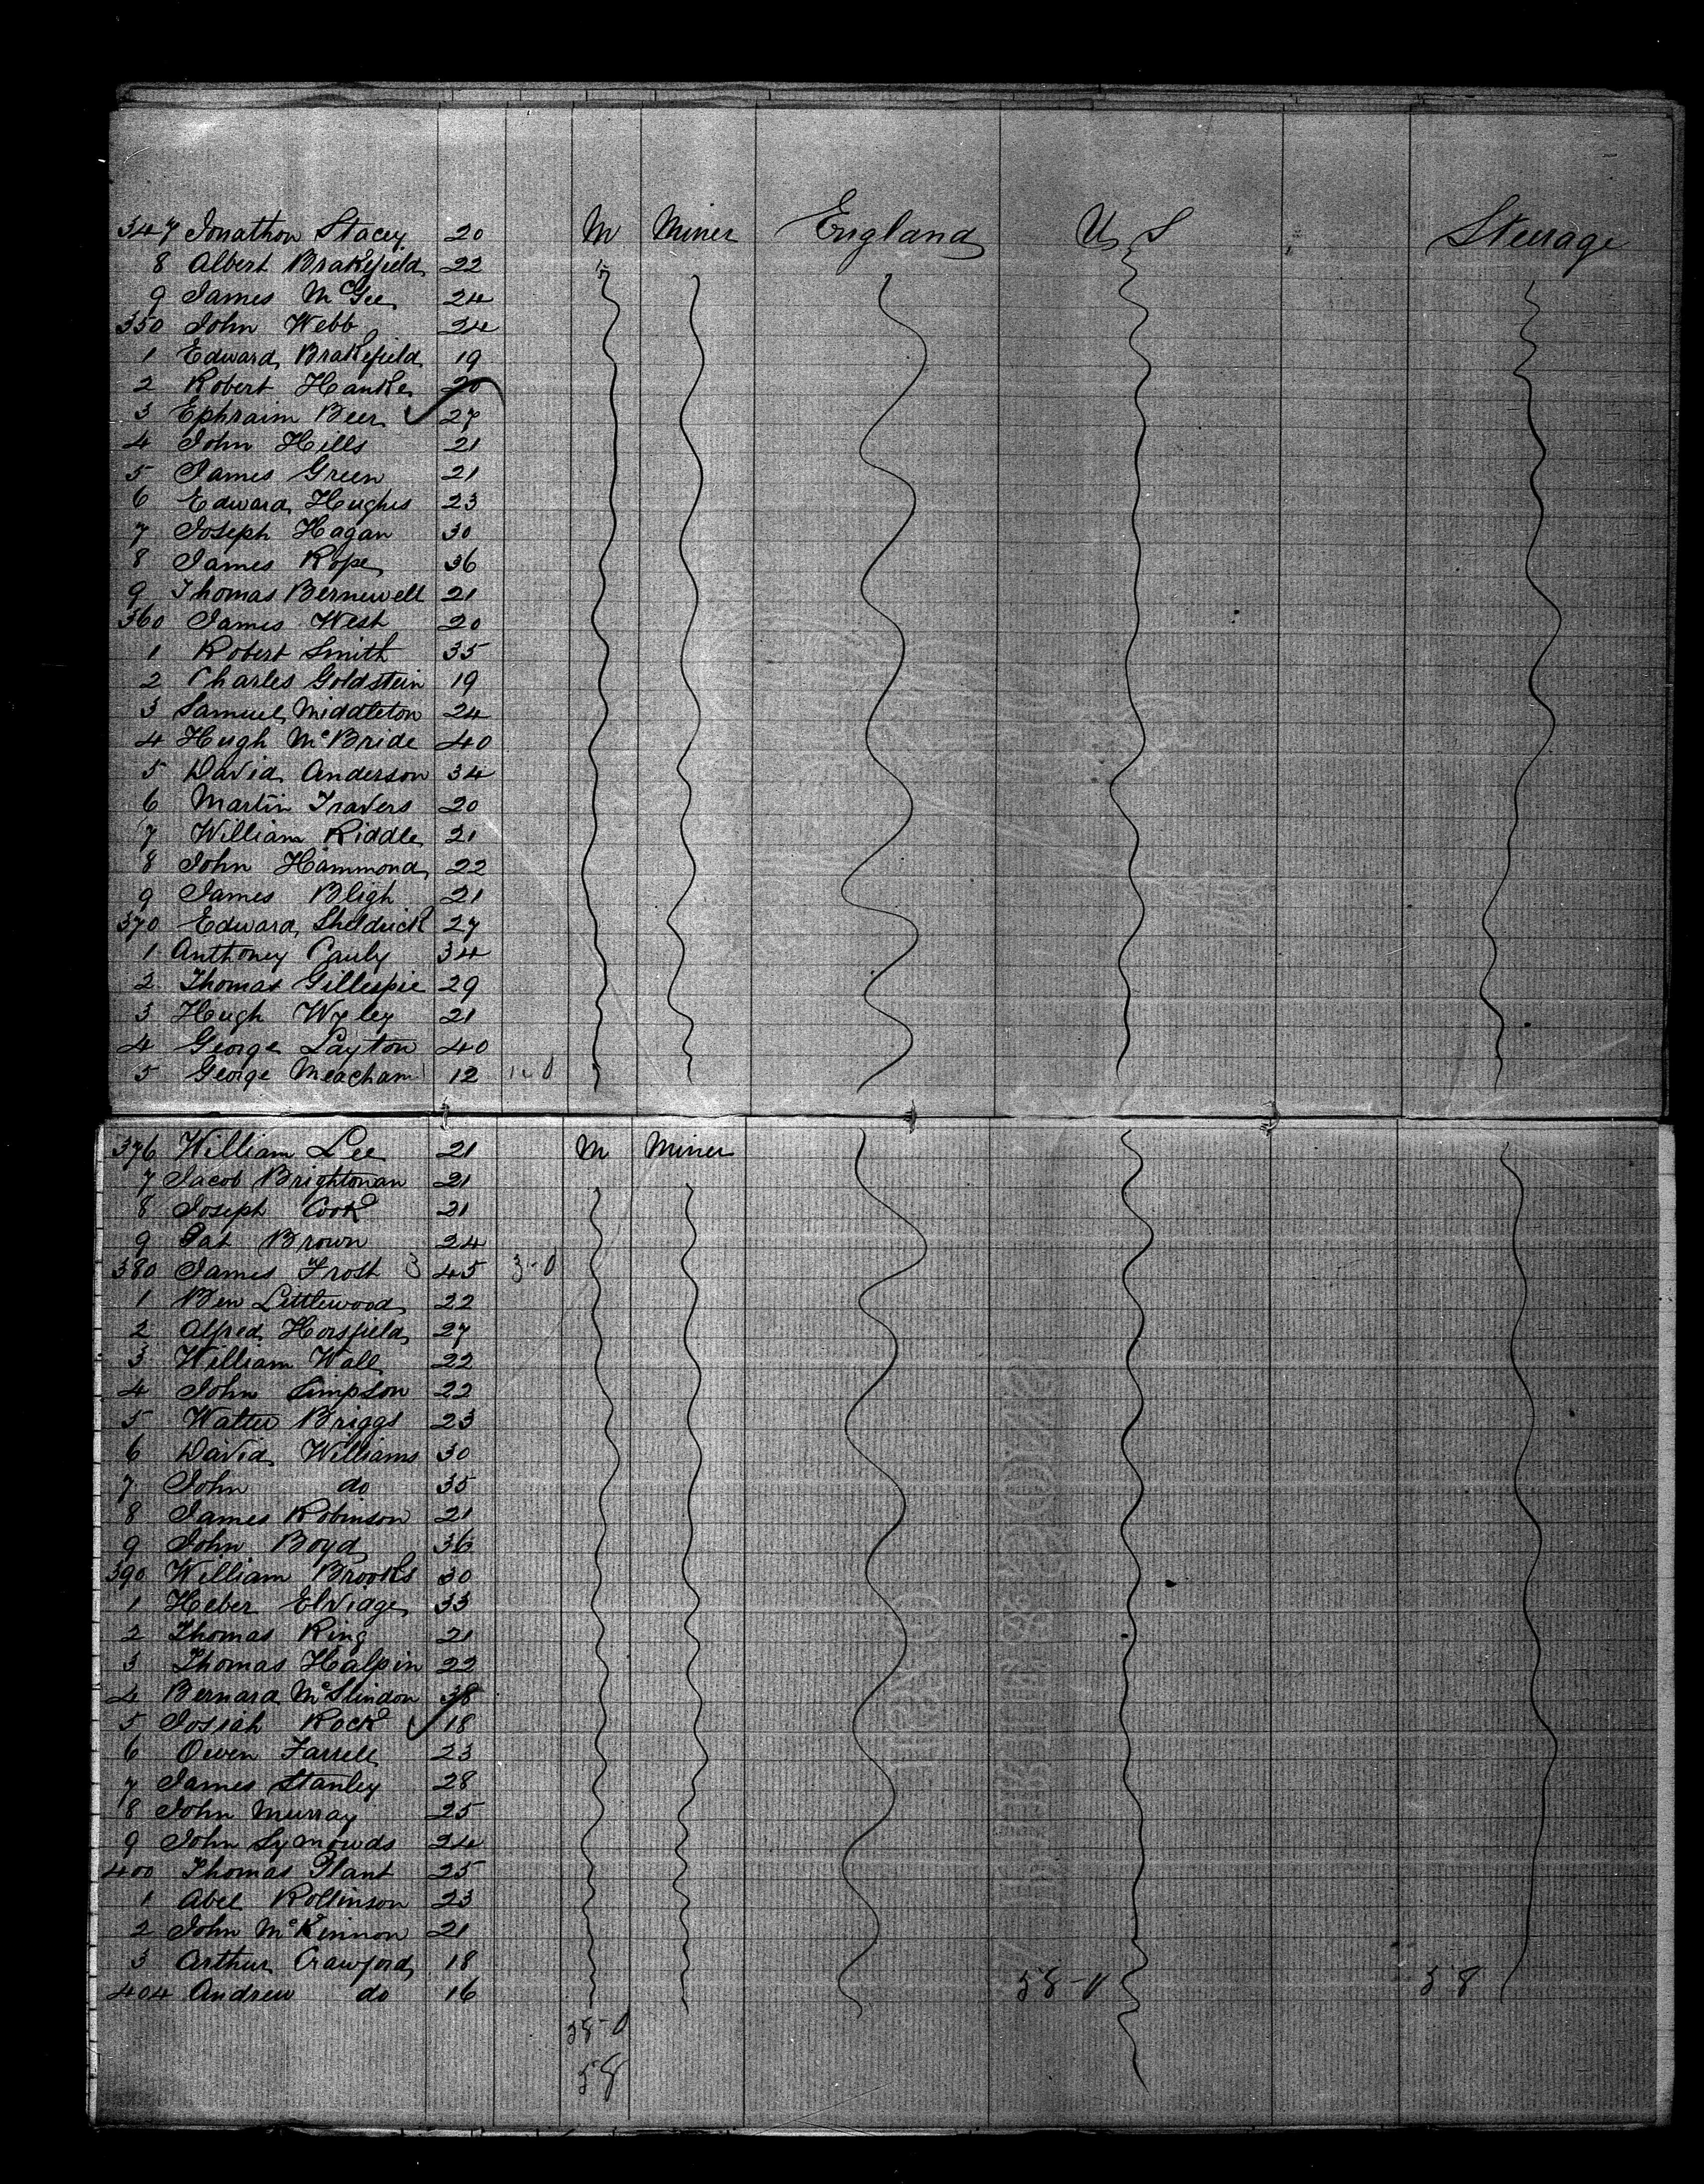 347 Jonathon Stacey 20 M Miner England U S Steerage
8 Albert Brakefield 22
9 James McGee 24
350 John Webb 24
1 Edward Brakefield 19
2 Robert Hanke 20
3 Ephraim Beer 27
4 John Hills 21
5 James Green 21
6 Edward Hughes 23
7 Joseph Hagan 30
8 James Rope 36
9 Thomas Bernewell 21
360 James West 20
1 Robert Smith 35
2 Charles Goldstein 19
3 Samuel Middleton 24
4 Hugh McBride 40
5 David Anderson 34
6 Martin Travers 20
7 William Riddle 21
8 John Hammond 22
9 James Bligh 21
370 Edward Sheldrick 27
1 Anthoney Cauly 34
2 Thomas Gillespie 29
3 Hugh Wyley 21
4 George Layton 40
5 George Meacham 12
376 William Lee 21 M Miner
7 Jacob Brightonan 21
8 Joseph Cook 21
9 Pat Brown 24
380 James Frost 3 45 3-0
1 Ben Littlewood 22
2 Alfred Horsfield 27
3 William Wall 22
4 John Simpson 22
5 Walter Briggs 23
6 David Williams 30
7 John do 35
8 James Robinson 21
9 John Boyd 36
390 William Brooks 30
1 Heber Elvidge 33
2 Thomas King 21
3 Thomas Halpin 22
4 Bernard McSlindon 38
5 Josiah Rock 18
6 Owen Farrell 23
7 James Stanley 28
8 John Murray 25
9 John Symowds 24
400 Thomas Plant 25
1 Abel Rollinson 23
2 John McKinnon 21
3 Arthur Crawford 18
404 Andrew do 16 58-0 58
58-0
58